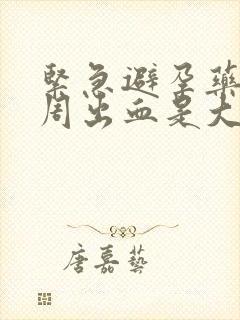 緊急避孕藥
周出血是大
唐嘉藝